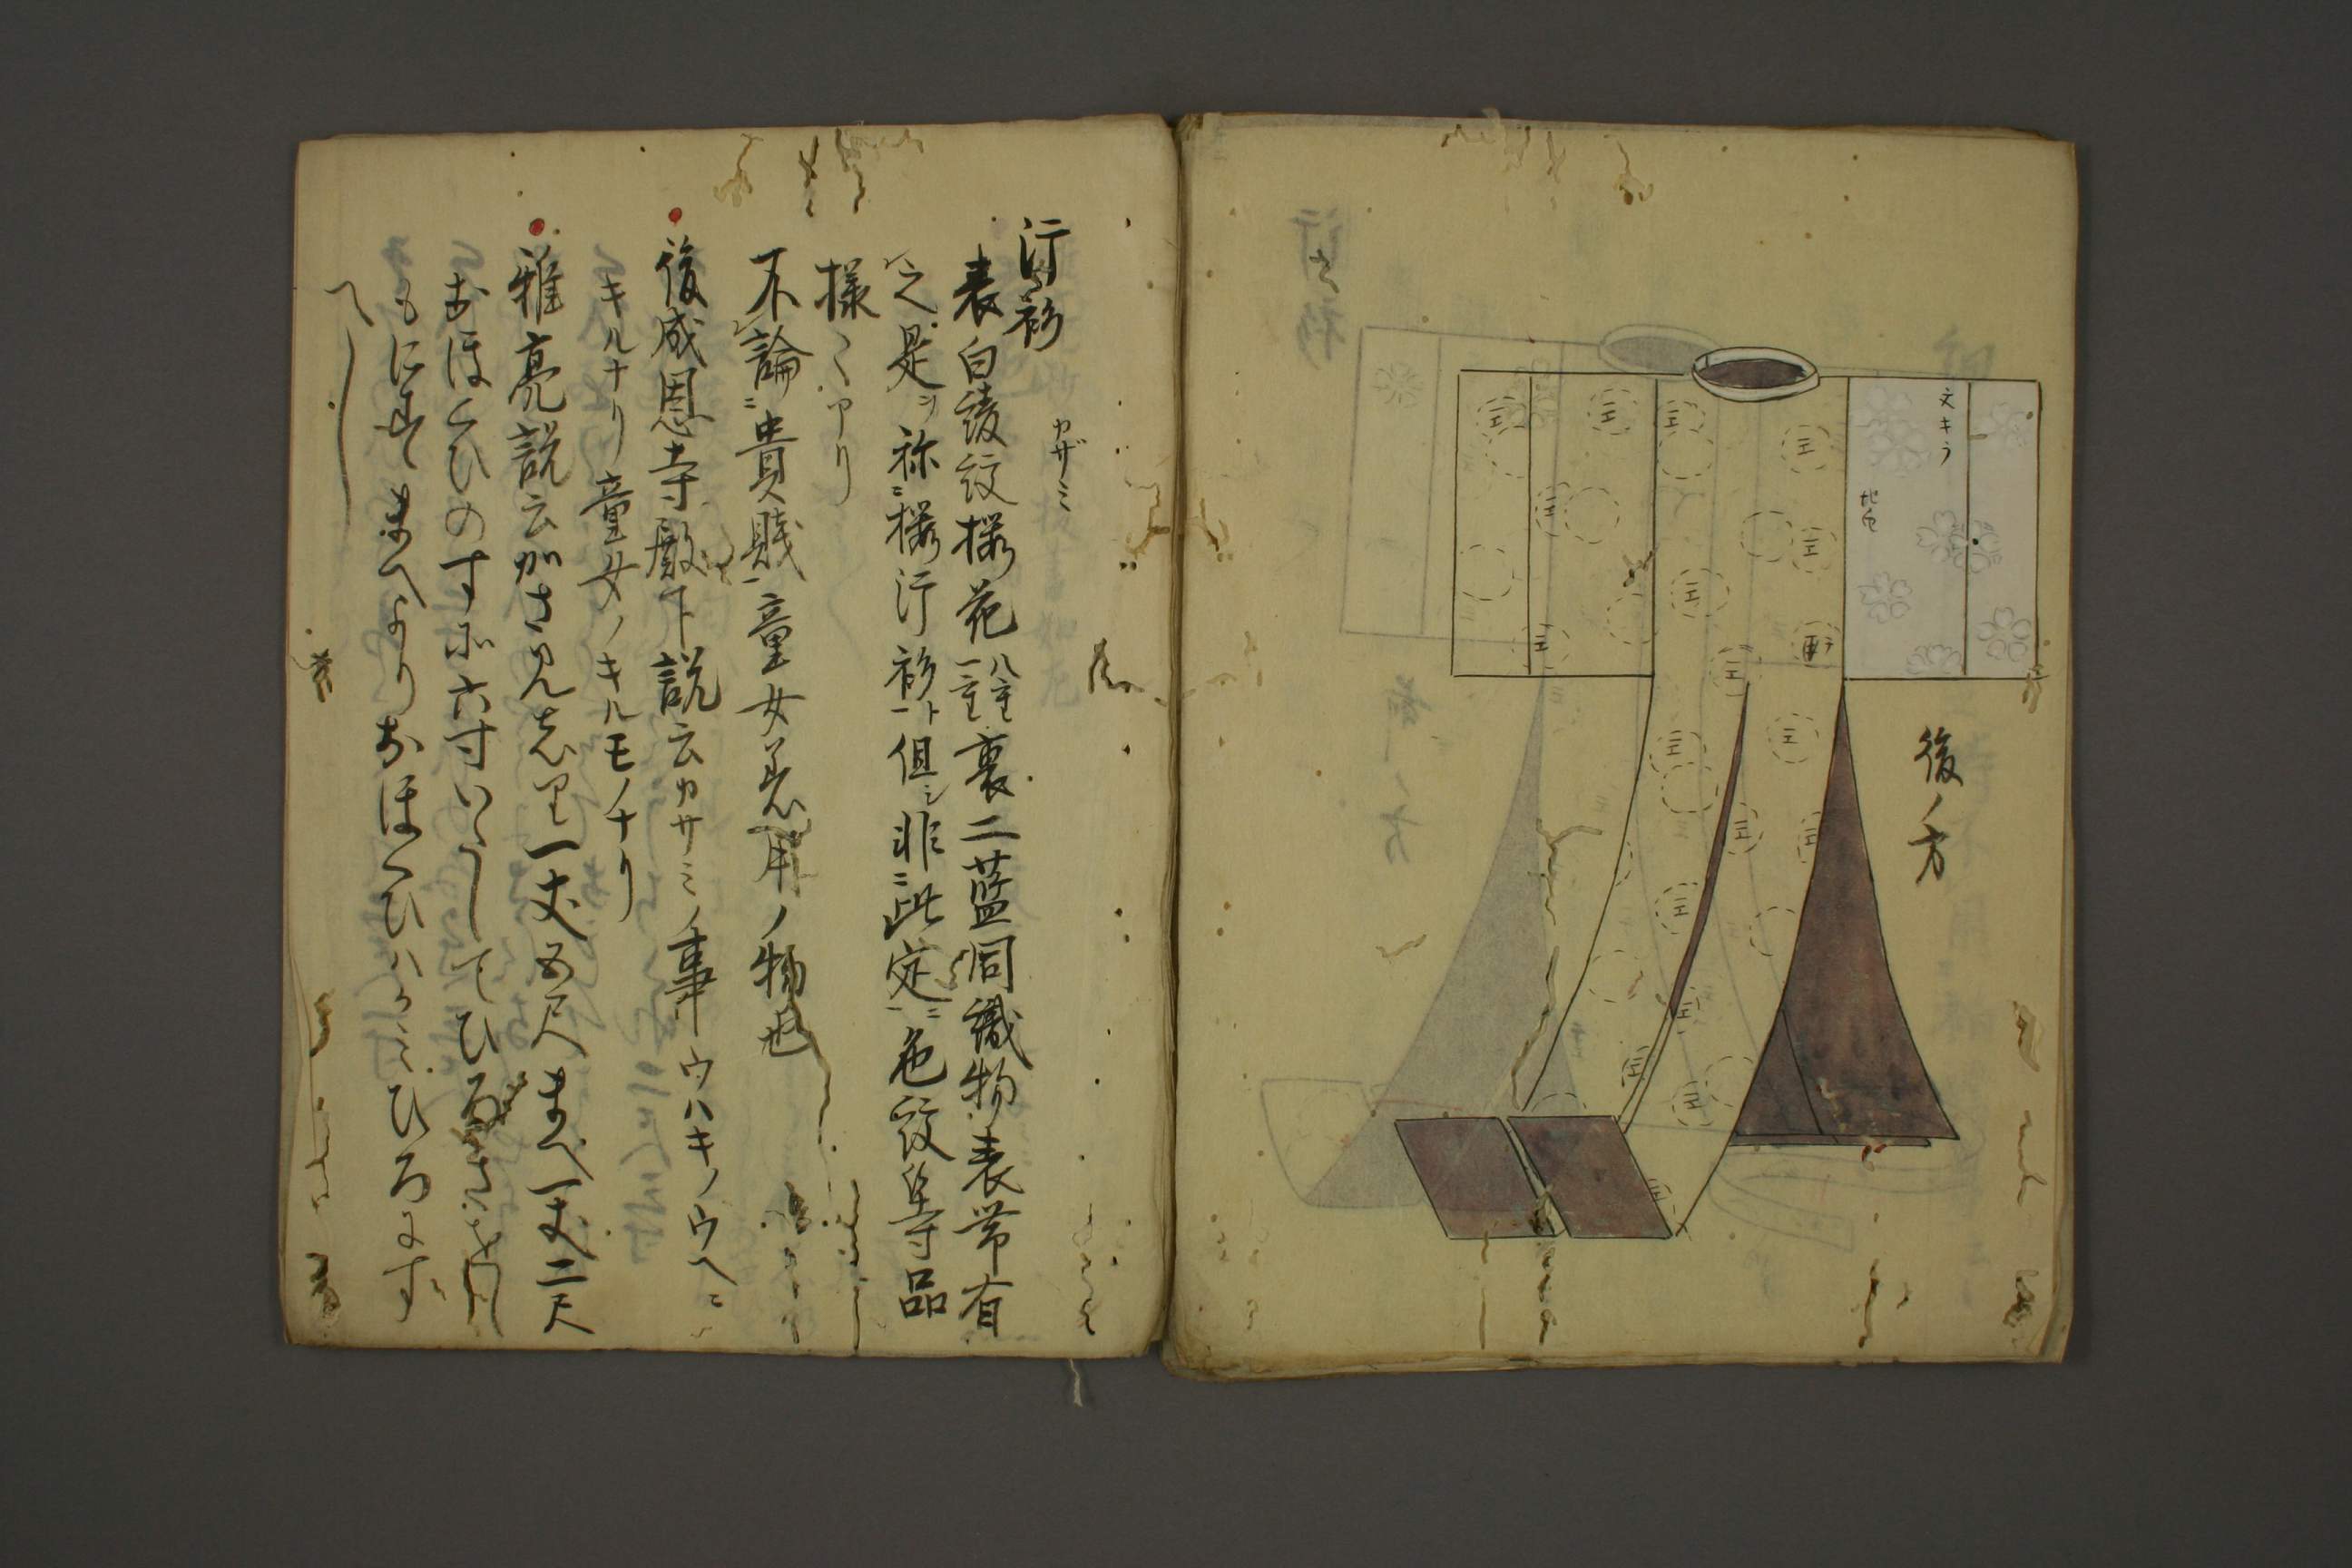 文キラ
地白
後ノ方
汗衫
カザミ
表白綾紋櫻花八重一重裏二藍同織物表帯有
之是ヲ称ニ櫻汗衫ト一但シ非ニ此定ニ一色紋等品
様々アリ
不レ論ニ貴賤一童女着用ノ物也
後成恩寺殿下説云カサミノ事ウハキノウヘニ
キルナリ童女ノキルモノナリ
雅亮説云かさみしり一丈五尺まへ一丈二尺
おほくひのすそ六寸いたしてひろさ
もにすまへよりおほくひハかみひろにす
へし